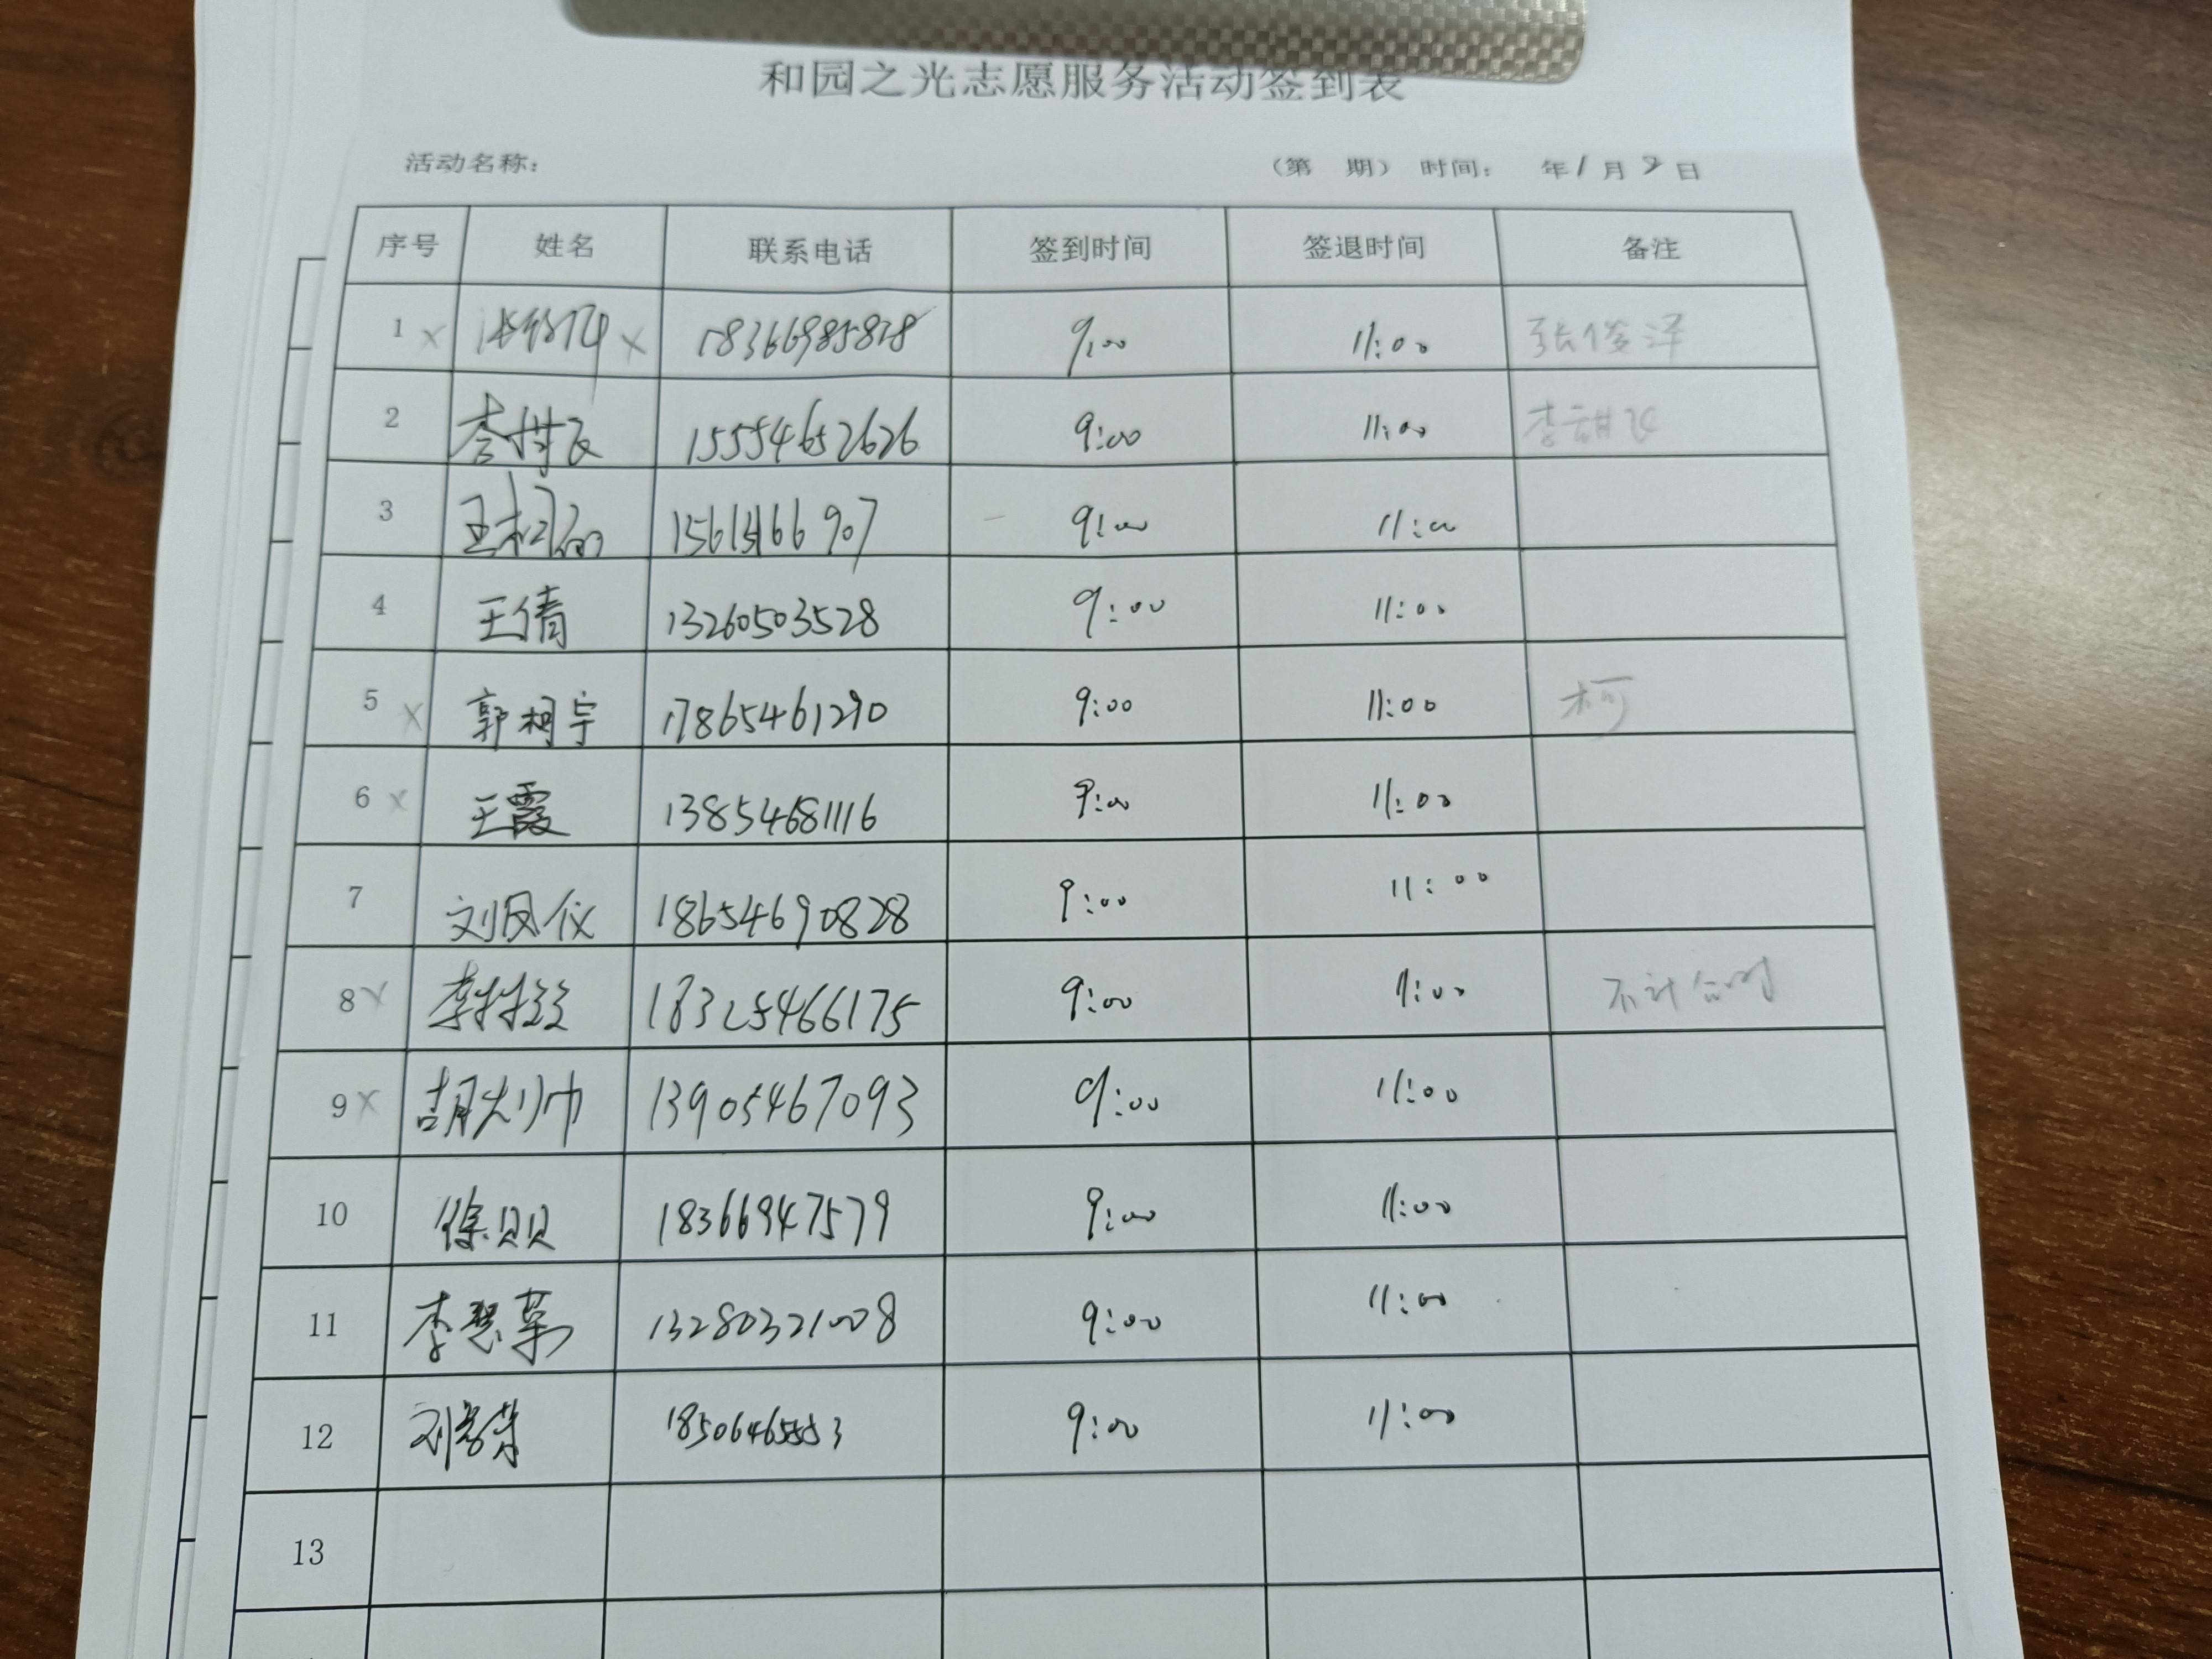 和园之光志愿服务活动签到表
活动名称： （第 期） 时间： 年1月9日
序号 姓名 联系电话 签到时间 签退时间 备注
1 × × 18366985828 9:00 11:00 张俊泽
2 李甜 15554652626 9:00 11:00 李甜
3 王 9:00 11:00
4 王倩 13260503528 9:00 11:00
5 × 郭柯宇 17865461290 9:00 11:00 柯
6 × 王霞 13854681116 9:00 11:00
7 刘凤仪 18654690828 9:00 11:00
8 × 李 18325466175 9:00 11:00 不计
9 × 胡 13905467093 9:00 11:00
10 徐贝贝 18366947579 9:00 11:00
11 李慧 13280321008 9:00 11:00
12 刘 9:00 11:00
13